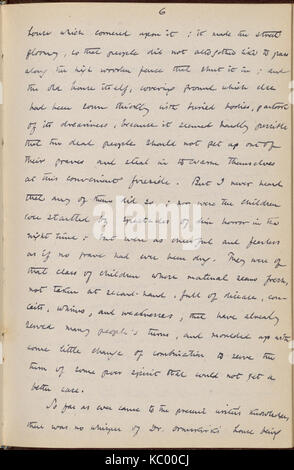 6
house which cornered upon it; it made the street
gloomy, so that people did not altogether like to pass
along the high wooden fence that shut it in; and
the old house itself, covering ground which else
had been sown thickly with buried bodies, partook
of its dreariness, because it seemed hardly possible
that the dead people should not get up out of
their graves and steal in to warm themselves
at this convenient fireside. But I never heard
that any of them did so; nor were the children
ever startled by spectacles of dim horror in the
night-time; but were as cheerful and fearless
as if no grave had ever been dug. They were of
that class of children whose material seems fresh,
not taken at second-hand, full of disease, con-
ceits, whims, and weaknesses, that have already
served many people's turns, and moulded up with
some little change of combination to serve the
turn of some poor spirit that could not get a
better case.
So far as ever came to the present writer's knowledge,
there was no whisper of Dr. house being
alamy
KC00CJ